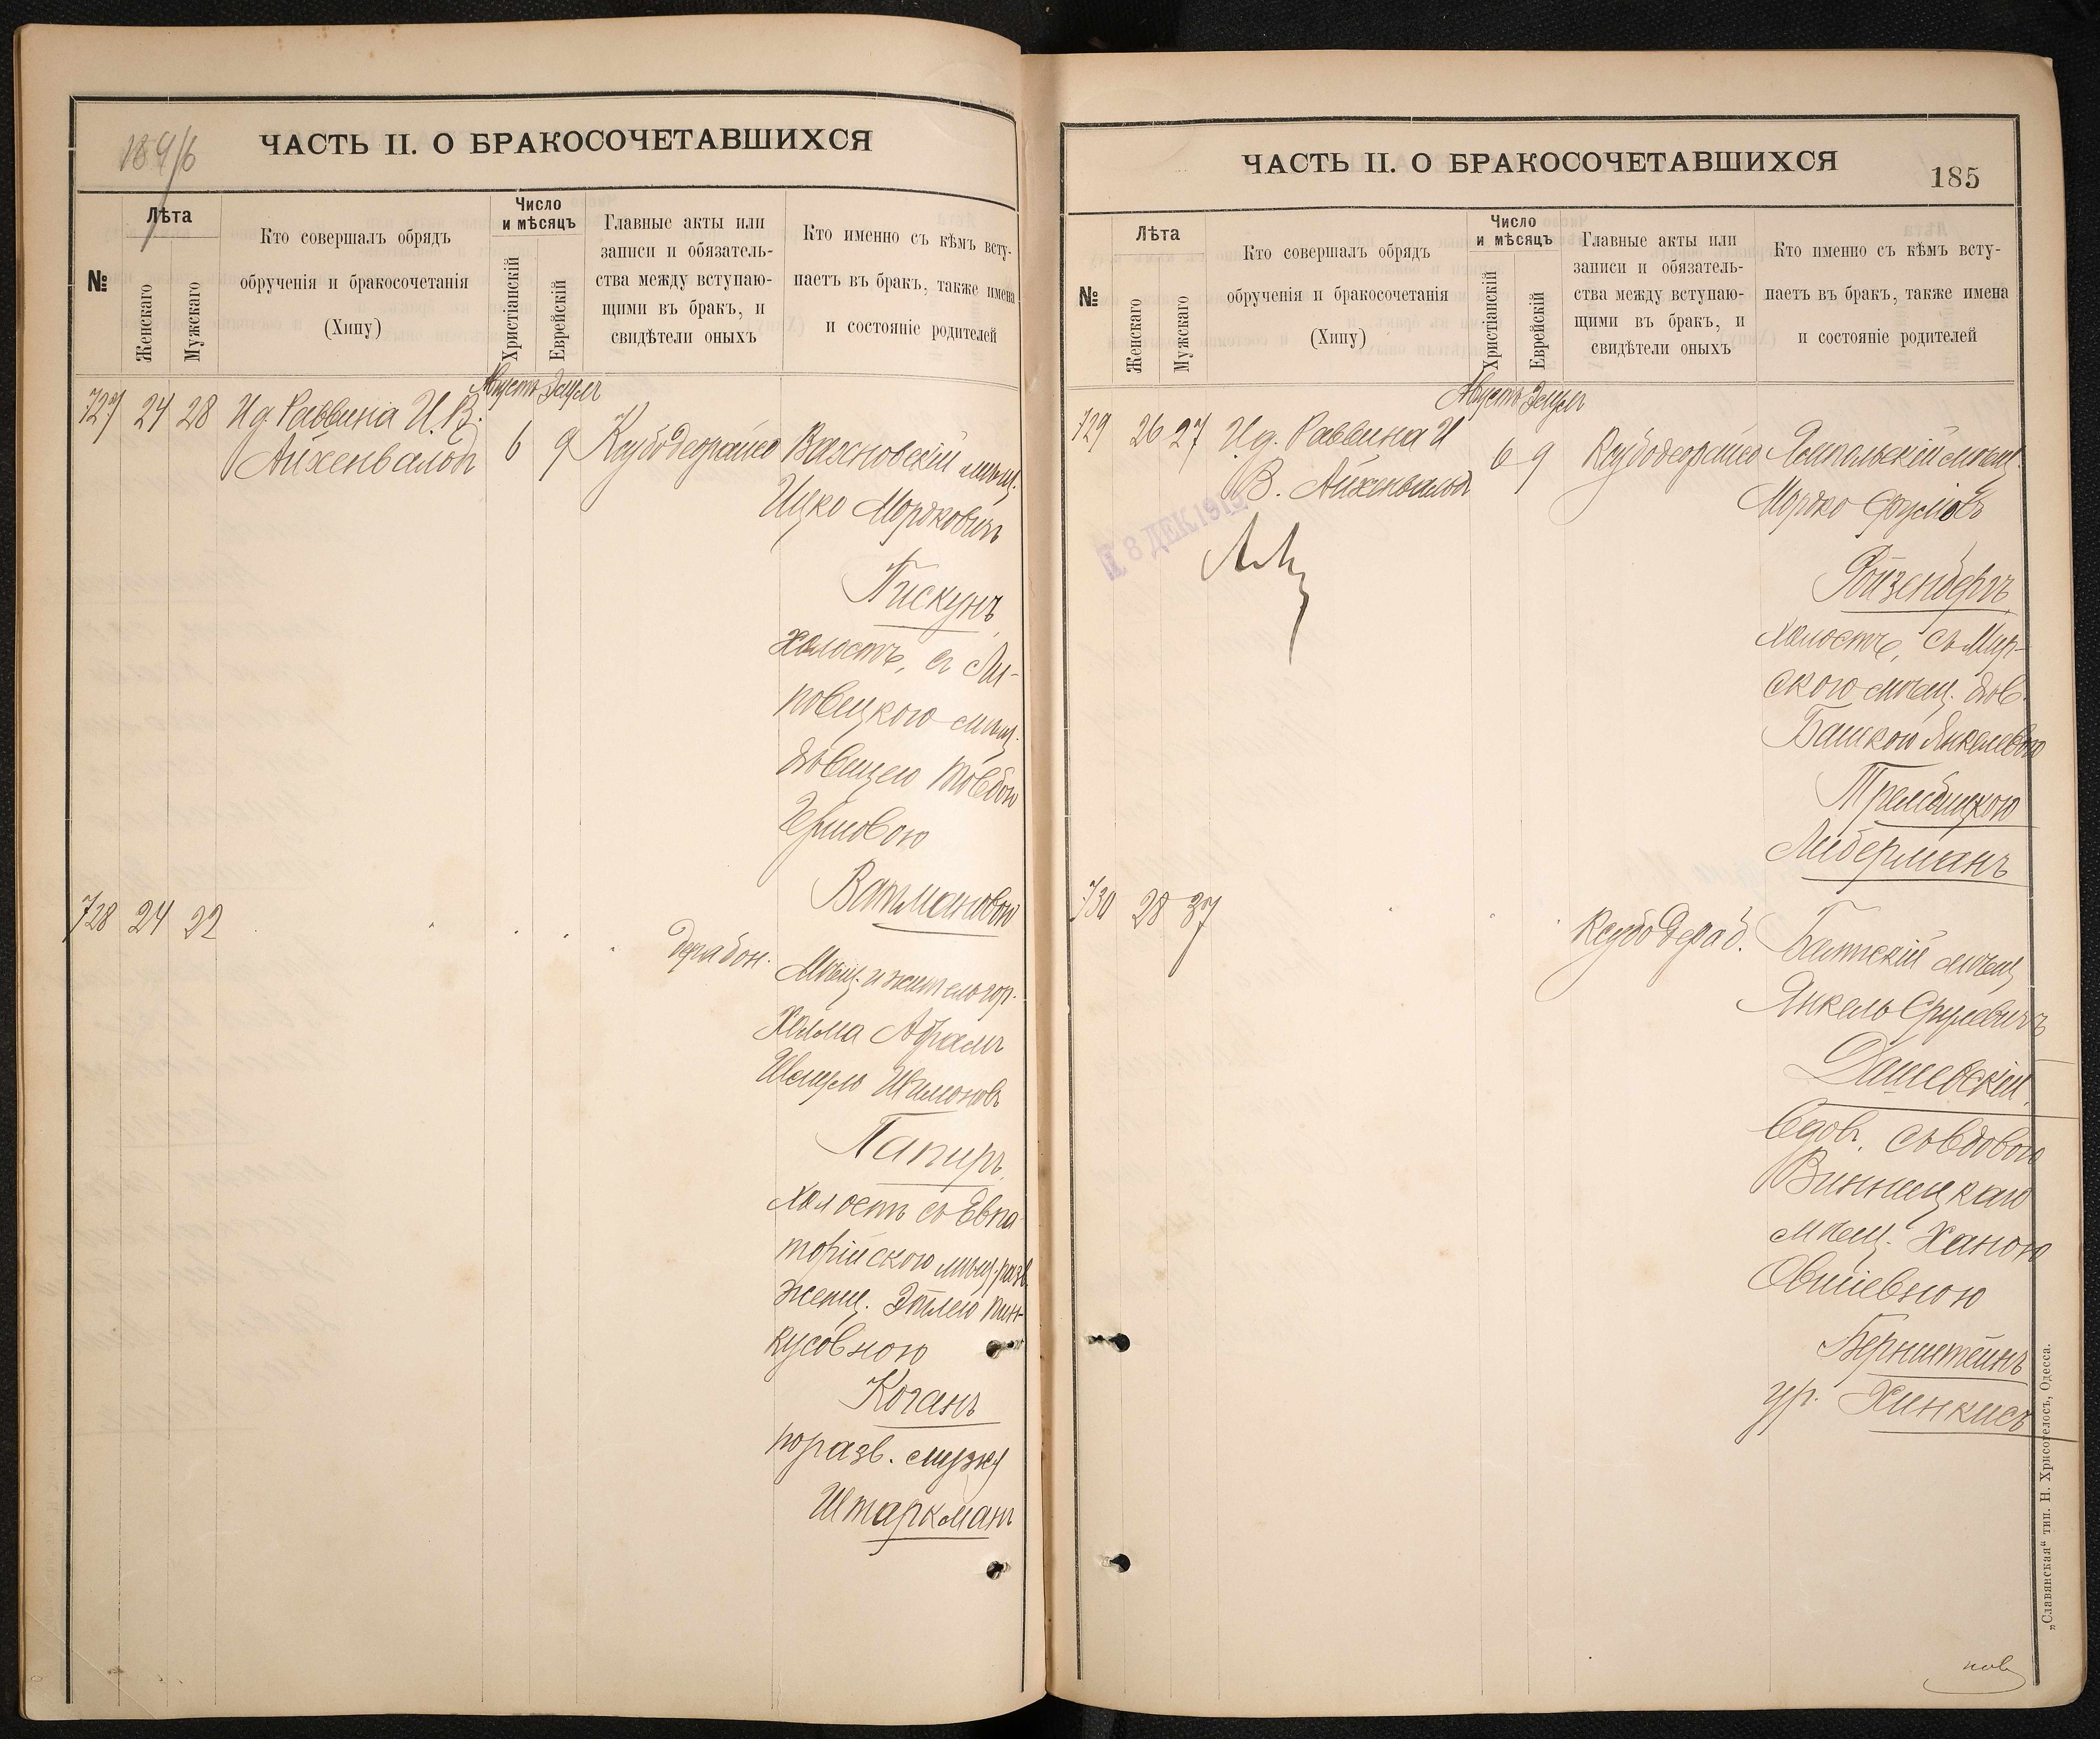 1896
ЧАСТЬ II. О БРАКОСОЧЕТАВШИХСЯ
№
Лѣта
Женскаго
Мужскаго
Кто совершалъ обрядъ
обрученія и бракосочетанія
(Хипу)
Число
и мѣсяцъ
Христіанскій
Еврейскій
Главные акты или
записи и обязатель-
ства между вступаю-
щими въ бракъ, и
свидѣтели оныхъ
Кто именно съ кѣмъ всту-
паетъ въ бракъ, также имена
и состояніе родителей
Августъ Элулъ
727 24 28 Ид. Раввина И. В.
Айхенвальд 6 9 Ксубо деорайсо Вахновскій мѣщ.
Ицко Мордковичъ
Пискунъ,
холостъ, съ Ли-
повецкою мѣщ.
дѣвицею Товбою
Гершовою
Ватмановою
728 24 22 дерабон.
Мѣщ. и житель гор.
Хелма Абрам
Шмуль Шимонов
Папиръ,
холостъ съ Евпа
торійскою мѣщ. разв.
женщ. Этлею Пин-
кусовною
Коганъ
по разв. мужу
Штаркман
ЧАСТЬ II. О БРАКОСОЧЕТАВШИХСЯ
185
№
Лѣта
Женскаго
Мужскаго
Кто совершалъ обрядъ
обрученія и бракосочетанія
(Хипу)
Число
и мѣсяцъ
Христіанскій
Еврейскій
Главные акты или
записи и обязатель-
ства между вступаю-
щими въ бракъ, и
свидѣтели оныхъ
Кто именно съ кѣмъ всту-
паетъ въ бракъ, также имена
и состояніе родителей
Августъ Элулъ
729 26 27 Ид. Раввина И
В. Айхенвальд 6 9 Ксубо деорайсо Ямпольскій мѣщ.
Мордко Срулевъ
8 ДЕК.191
Ройзенбергъ,
холостъ, съ Мир-
скою мѣщ. дѣв.
Башкою Янкелевою
Трембицкою
Либерманъ
730 28 37 Ксубо Дераб. Балтскій мѣщ.
Янкель Срулевичъ
Дашевскій,
вдов. съ вдовою
Винницкою
мѣщ. Ханою
Овшіевною
Бернштейнъ
ур. Хинкисъ
„Славянская“ тип. Н. Хрисогелосъ, Одесса.